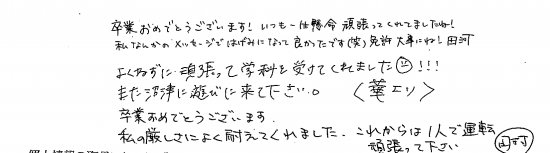 卒業おめでとうございます! いつも一生懸命 頑張ってくれてましたね!
私なんかのメッセージではげみになって良かったです(笑) 免許 大事にね! 田河
よくねずに 頑張って学科を受けてくれました !!!
また沼津に遊びに来て下さい。 〈華エリ〉
卒業おめでとうございます。
私の厳しさによく耐えてくれました. これからは1人で運転
頑張って下さい 田村